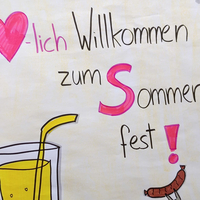 -lich Willkommen
zum Sommer
fest!